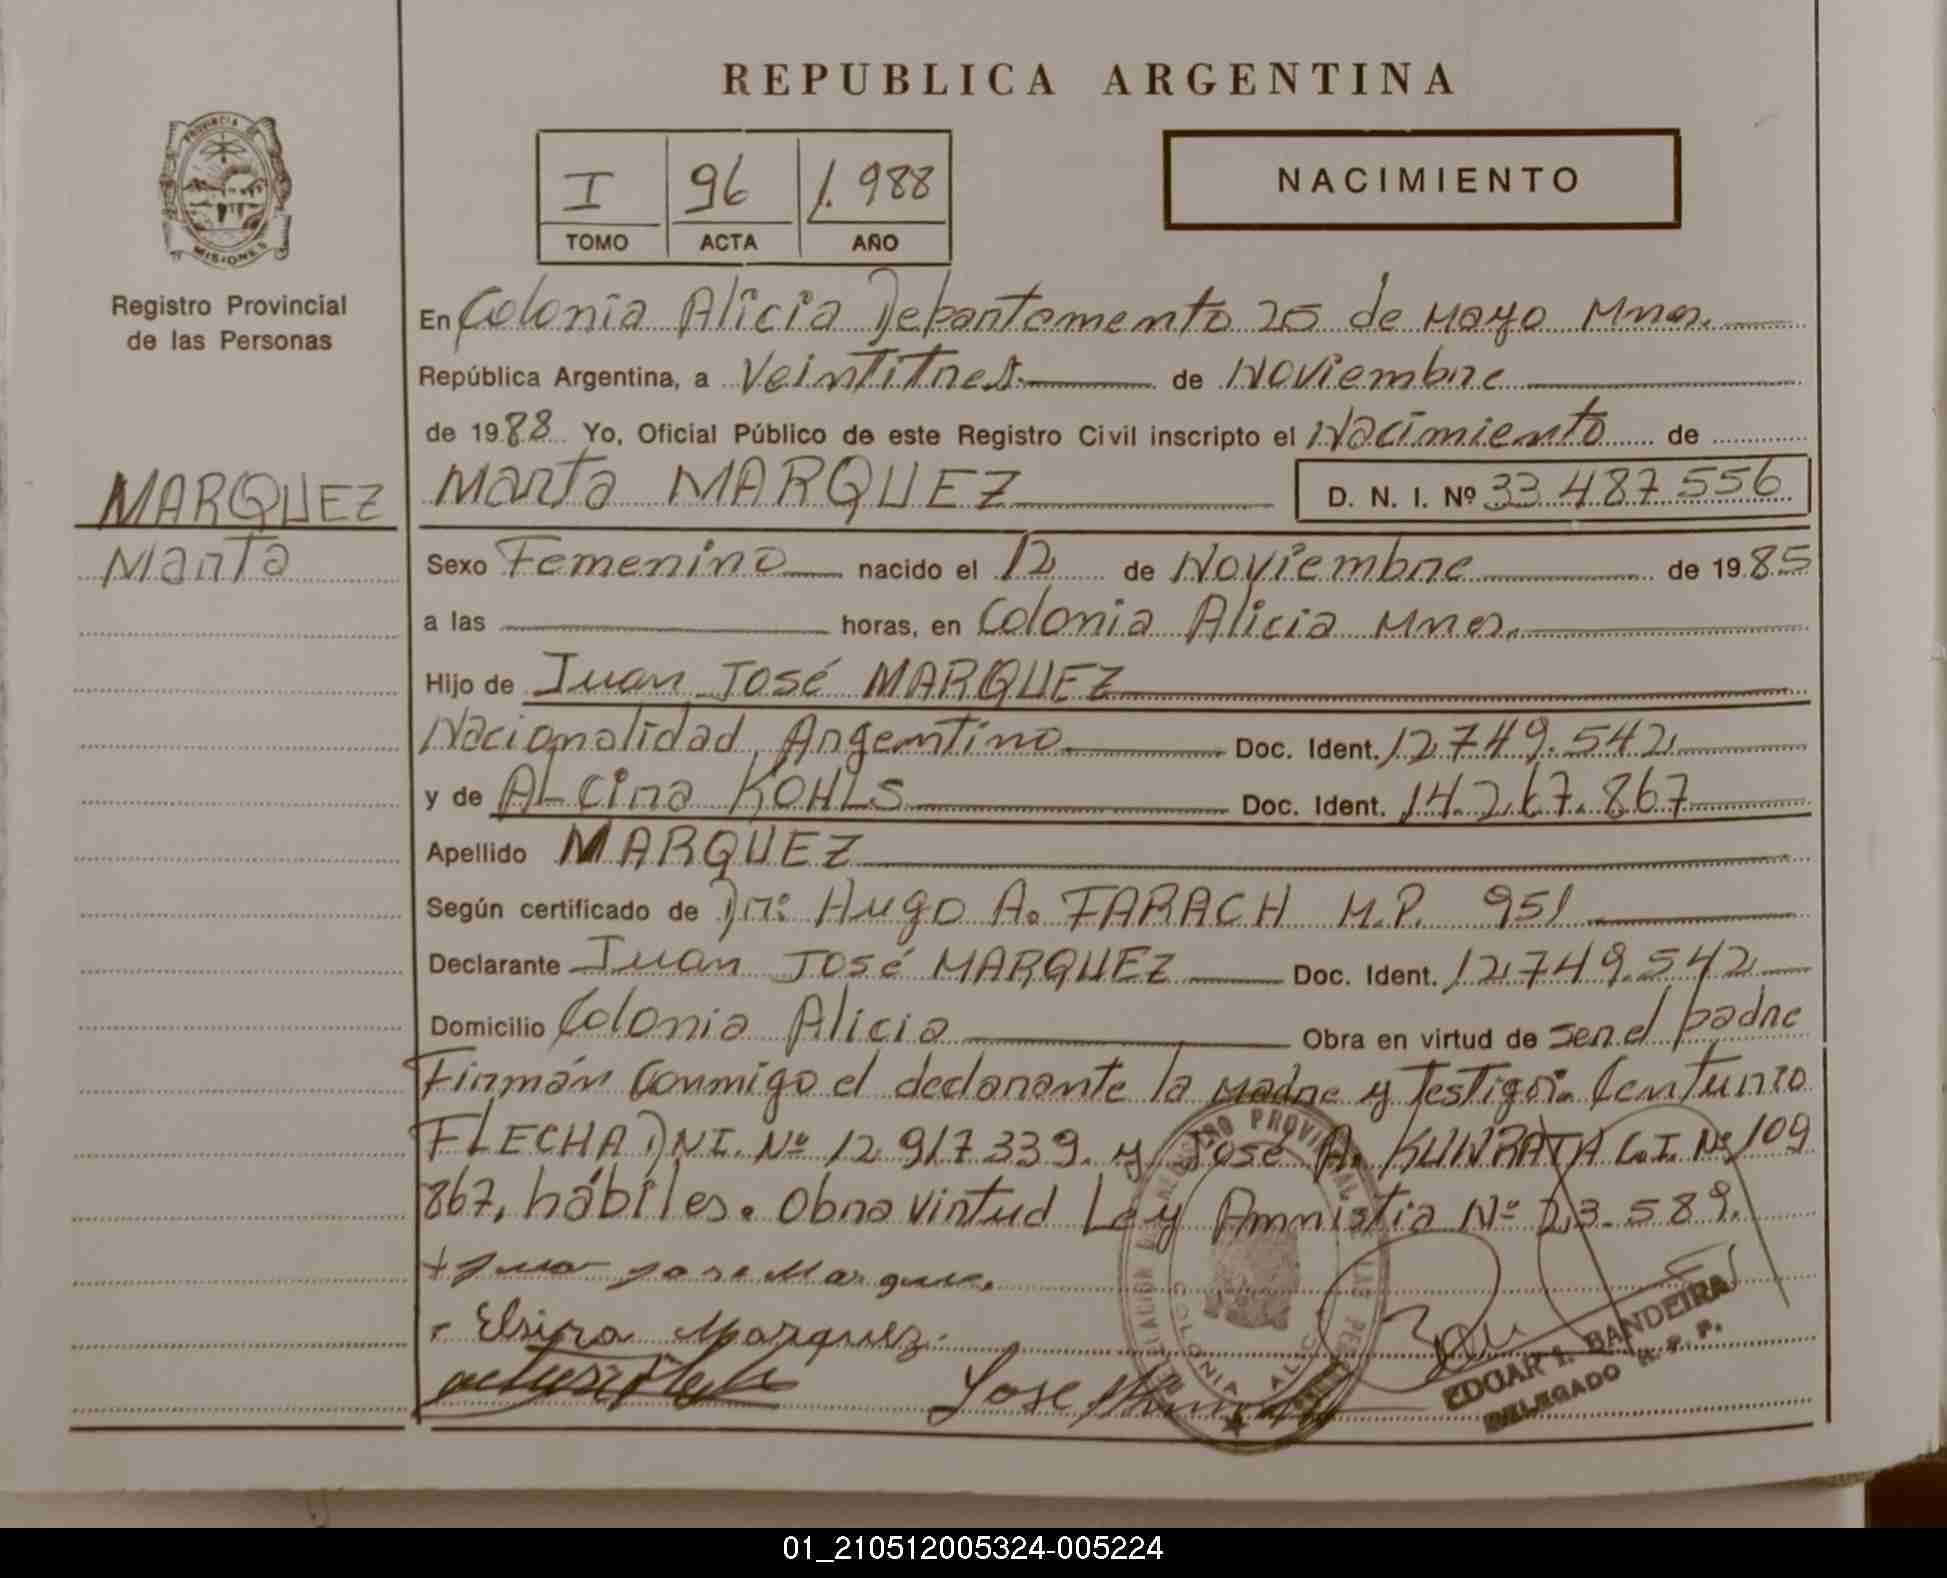 REPUBLICA ARGENTINA
PROVINCIA DE
MISIONES
Registro Provincial
de las Personas
I 96 1.988
TOMO ACTA AÑO
NACIMIENTO
En Colonia Alicia Departamento 25 de Mayo Mnes.
República Argentina, a Veintitres de Noviembre
de 1988 Yo, Oficial Público de este Registro Civil inscripto el Nacimiento de
MARQUEZ
Marta
Marta MARQUEZ D. N. I. Nº 33.487.556
Sexo Femenino nacido el 12 de Noviembre de 1985
a las horas, en Colonia Alicia Mnes.
Hijo de Juan José MARQUEZ
Nacionalidad Argentino Doc. Ident. 12.749.542
y de ALcina KOHLS Doc. Ident. 14.267.867
Apellido MARQUEZ
Según certificado de Dr: Hugo A. FARACH M.P. 951
Declarante Juan José MARQUEZ Doc. Ident. 12.749.542
Domicilio Colonia Alicia Obra en virtud de ser el padre
Firmán Conmigo el declarante la Madre y Testigos. Centurio
FLECHA DNI. Nº 12.917.339. y José A. KUNRATA C.I. Nº 109
867, hábiles. Obra virtud Ley Amnistia Nº 23.589.
Juan Jose Marquez.
Elsira Marquez.
Jose
COLONIA ALICIA
EDGAR I. BANDEIRA
DELEGADO R. P. P.
01_210512005324-005224